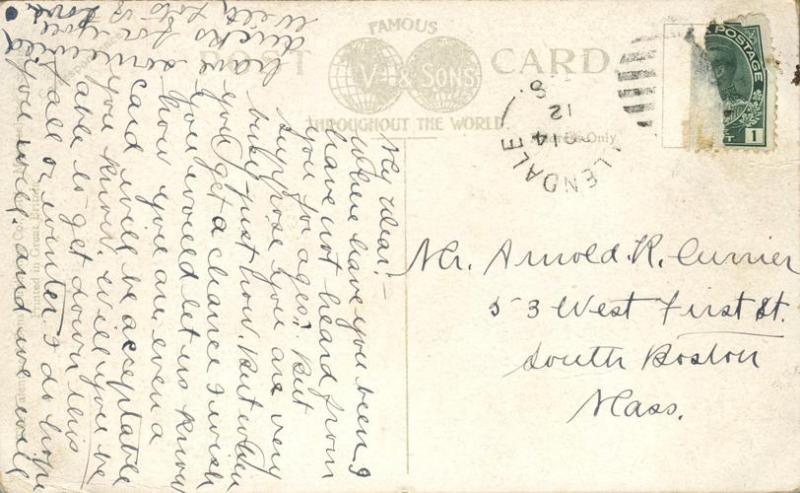 FAMOUS
POST CARD
V & SONS
THROUGHOUT THE WORLD.
Only
POSTAGE
1
LENDALE
14
12
8
Printed in Great
Mr. Arnold R. Currier
53 West First St.
South Boston
Mass.
My dear:-
Where have you been? I
have not heard from
you for ages? But
suppose you are very
busy just now. But when
you get a chance I wish
you would let us know
how you are, even a
card will be acceptable
you know. Will you be
able to get down this
fall or winter. I do hope
you will. and we will
have
ducks for you
Well
Love